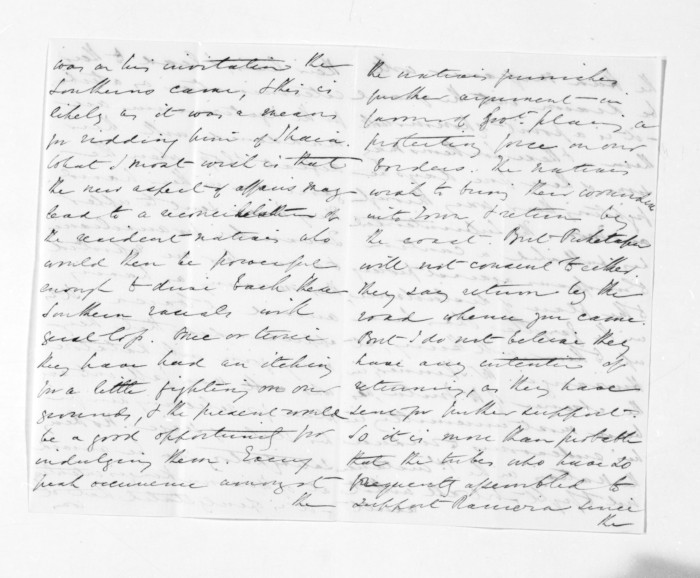 was on his invitation the
Southerns came, & this is
likely as it was a means
for ridding him of Ihaia.
What I most wish is that
the new aspect of affairs may
lead to a reconciliation of
the resident natives who
would then be powerful
enough to drive back these
Southern rascals with
great loss. Once or twice
they have had an itching
for a little fighting on our
grounds, & the present would
be a good opportunity for
indulging them. Every
fresh occurrence amongst
the
the natives furnishes
further argument in
favor of Govt. placing a
protecting force on our
borders. The natives
wish to bring their wounded
into Town, & return by
the coast. But
will not consent to either.
They say return by the
road whence you came.
But I do not believe they
have any intention of
returning, as they have
sent for further support.
So it is more than probable
that the tribes who have so
frequently assembled to
support Rawiri since
the